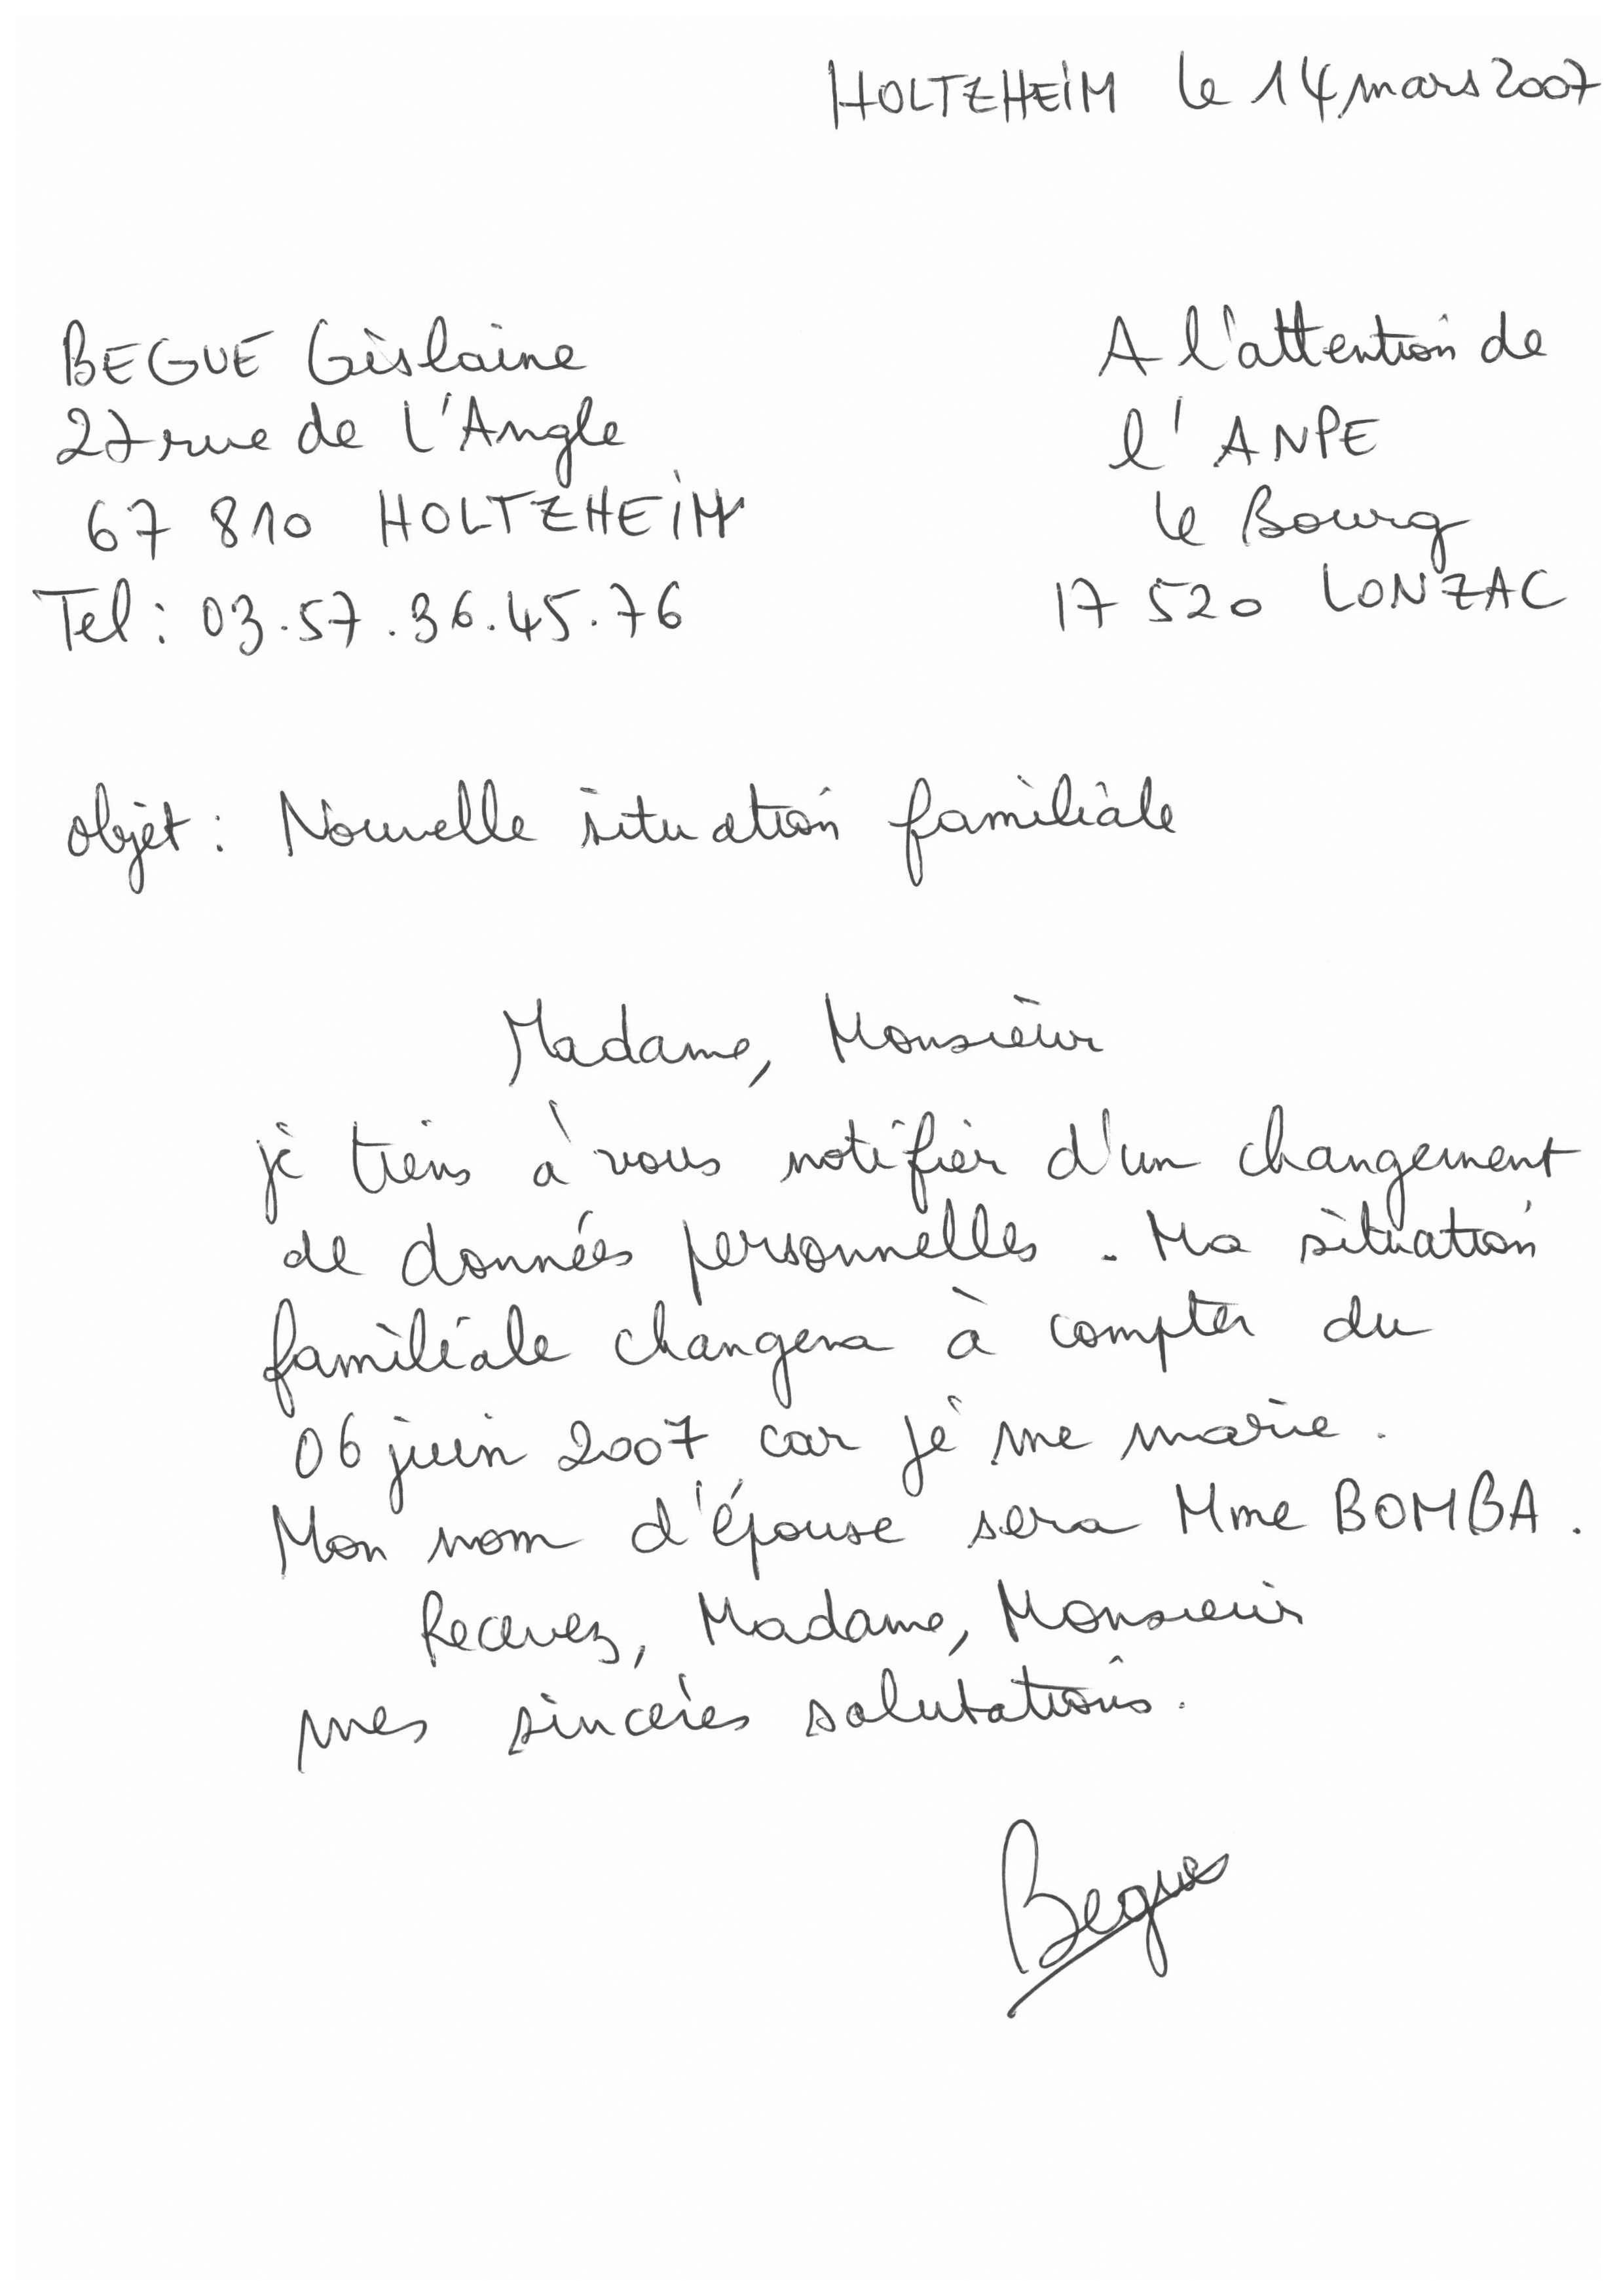 HOLTZHEIM le 14 mars 2007
BEGUE Gislaine
27 rue de l'Angle
67 810 HOLTZHEIM
Tel : 03.57.36.45.76
A l'attention de
l'ANPE
le Bourg
17 520 LONZAC
objet : Nouvelle situation familiale
Madame, Monsieur
je tiens à vous notifier d'un changement
de données personnelles. Ma situation
familiale changera à compter du
06 juin 2007 car je me marie.
Mon nom d'épouse sera Mme BOMBA.
Recevez, Madame, Monsieur
mes sincères salutations.
Begue